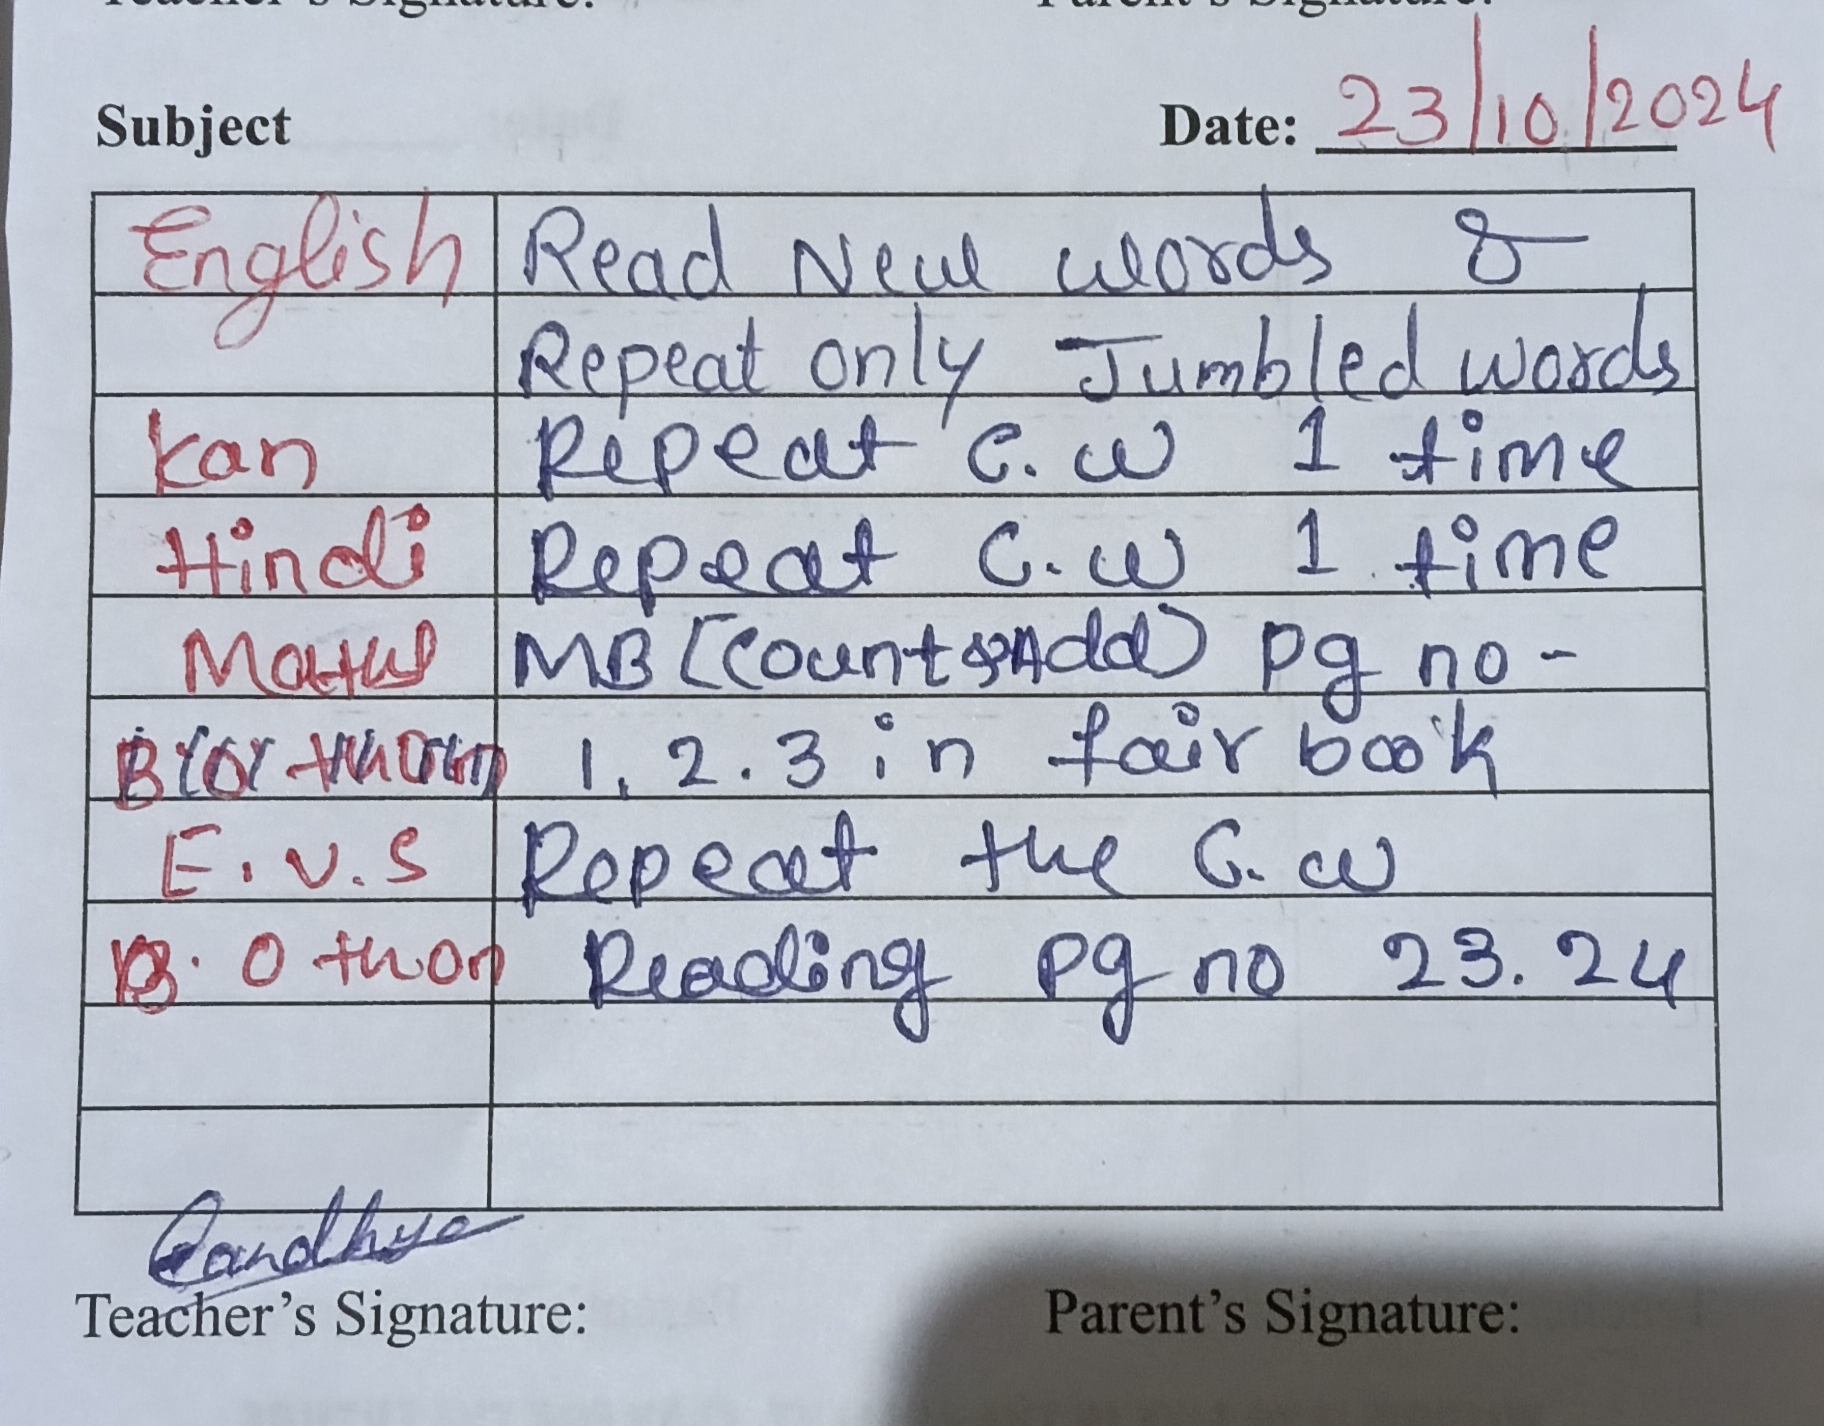 Teacher's Signature: Parent's Signature:
Subject Date: 23/10/2024
English Read New words &
Repeat only Jumbled words
kan Repeat C.w 1 time
Hindi Repeat C.w 1 time
Maths MB [Count & Add) pg no -
1, 2. 3 in fair book
E.v.s Repeat the C.w
B. O thon Reading pg no 23. 24
Sandhya
Teacher's Signature: Parent's Signature: